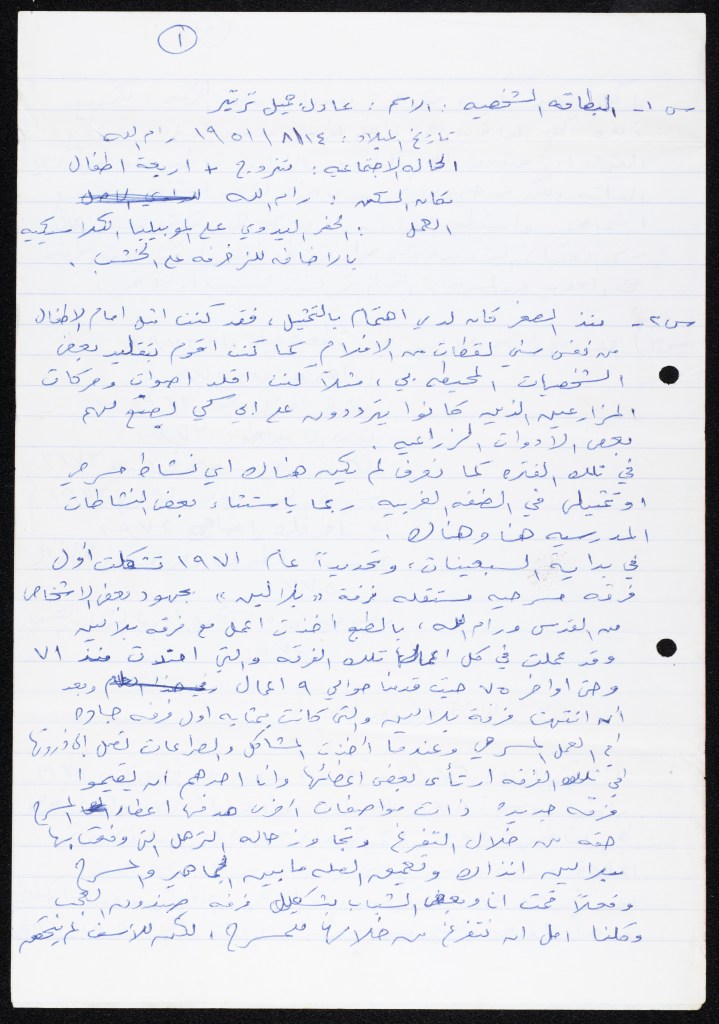 ١
س١- البطاقه الشخصيه : الاسم : عادل جميل ترتير
تاريخ الميلاد : ١٩٥١/٨/١٤ رام الله
الحاله الاجتماعيه : متزوج + اربعة اطفال
مكان السكن : رام الله
العمل : الحفر اليدوي على الموبيليا الكلاسيكيه
بالاضافه للزخرفه على الخشب .
س٢- منذ الصغر كان لدي اهتمام بالتمثيل ، فقد كنت امثل امام الاطفال
من نفس سني لقطات من الافلام كما كنت اقوم بتقليد بعض
الشخصيات المحيطه بي ، مثلاً كنت اقلد اصوات وحركات
المزارعين الذين كانوا يترددون على ابي كي يصنع لهم
بعض الادوات الزراعيه .
في تلك الفتره كما نعرف لم يكن هناك اي نشاط مسرحي
او تمثيلي في الضفه الغربيه ربما باستثناء بعض النشاطات
المدرسيه هنا وهناك .
في بداية السبعينات ، وتحديداً عام ١٩٧١ تشكلت اول
فرقه مسرحيه مستقله فرقة " بلالين " بجهود بعض الاشخاص
من القدس ورام الله ، بالطبع اخذت اعمل مع فرقه بلالين
وقد عملت في كل اعمال تلك الفرقه والتي امتدت منذ ٧١
وحتى اواخر ٧٥ حيث قدمنا حوالي ٩ اعمال وبعد
ان انتهت فرقة بلالين والتي كانت بمثابه اول فرقه جاده
في العمل المسرحي وعندما اخذت المشاكل والصراعات تصل الى ذروتها
في تلك الفرقه ارتأى بعض اعضائها وانا احدهم ان يقيموا
فرقه جديده ذات مواصفات اخرى هدفها اعطاء المسرح
حقه من خلال التفرغ وتجاوز حاله الترهل التي وقعت بها
بلالين انذاك وتعميق العلاقه ما بين الجماهير والمسرح
وفعلاً قمت انا وبعض الشباب بتشكيل فرقه صندوق العجب
وكلنا امل ان نتفرغ من خلالها للمسرح ، لكن للاسف لم يتحقق